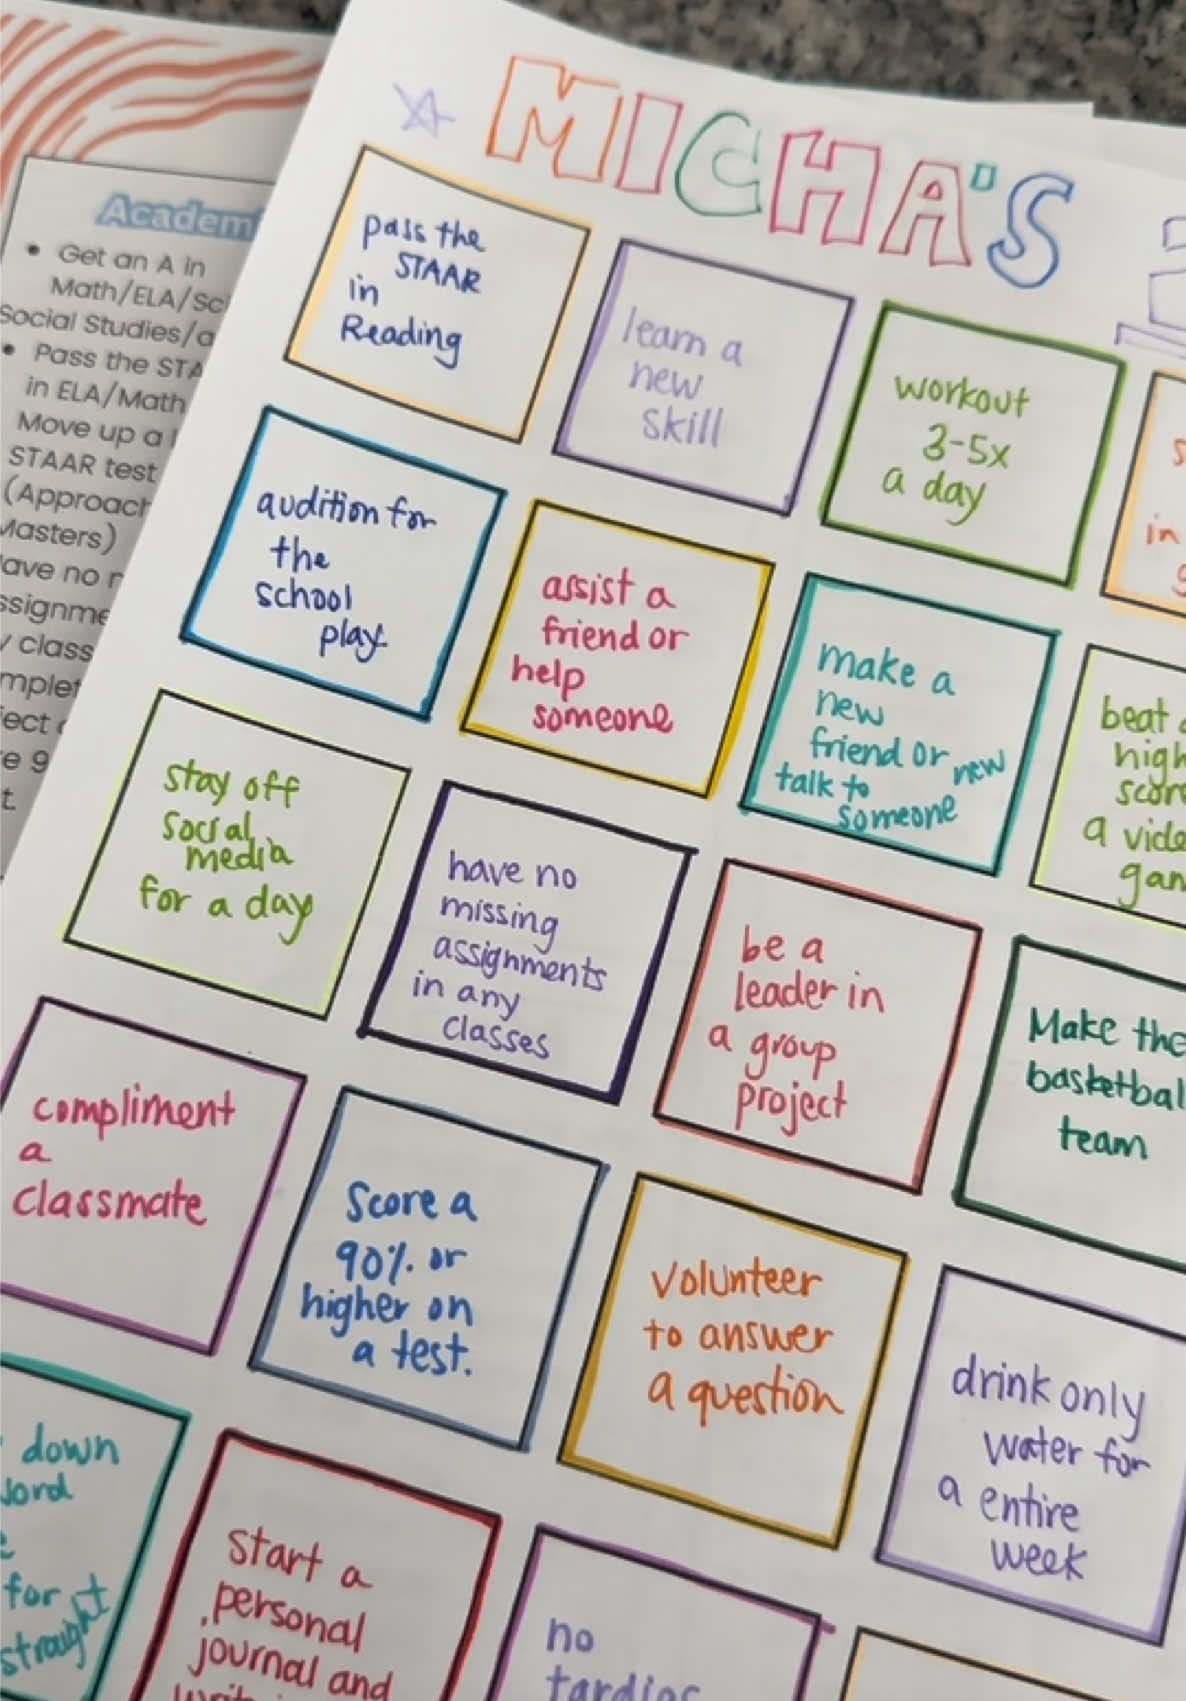 MICHA'S
Academ
Get an A in
Math/ELA/Sc
Social Studies/a
Pass the STA
in ELA/Math
Move up a
STAAR test
(Approach
Masters)
pass the
STAAR
in
Reading
learn a
new
skill
workout
3-5x
a day
in
audition for
the
school
play.
assist a
friend or
help
someone
make a
new
friend or new
talk to
someone
beat
high
score
a vide
gam
stay off
social
media
for a day
have no
missing
assignments
in any
classes
be a
leader in
a group
project
Make the
basketbal
team
compliment
a
classmate
Score a
90% or
higher on
a test.
volunteer
to answer
a question
drink only
water for
a entire
week
down
for
straight
start a
personal
journal and
no
tardies